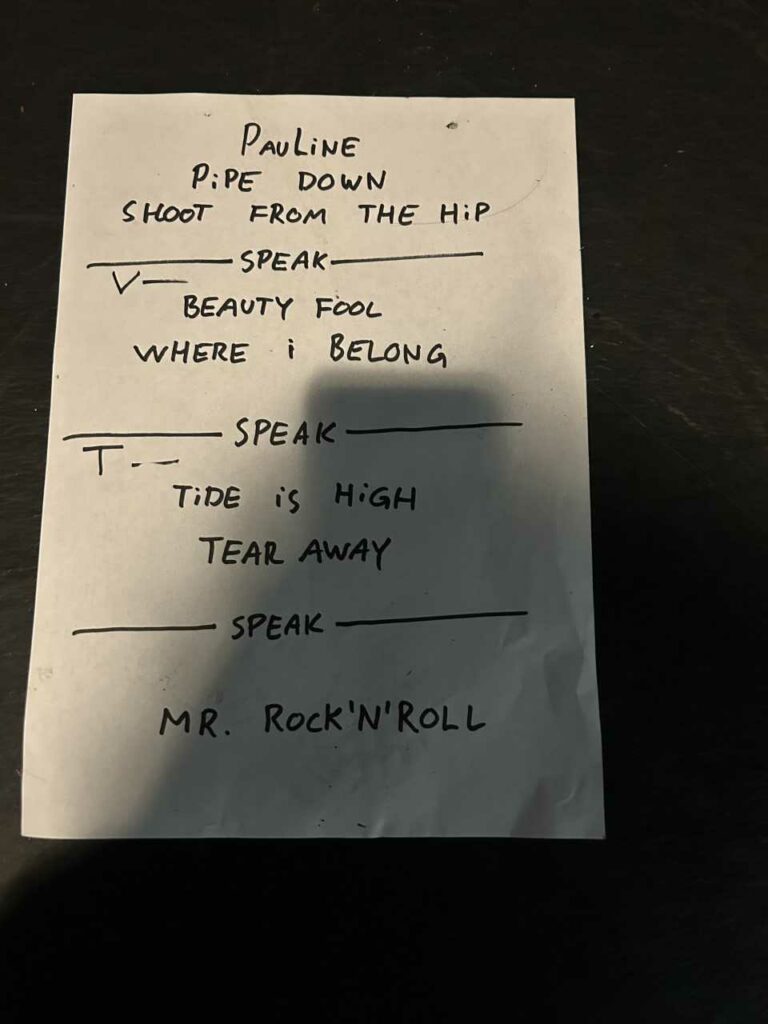 PAULINE
PiPE DOWN
SHOOT FROM THE HiP
SPEAK
V—
BEAUTY FOOL
WHERE i BELONG
SPEAK
T--
TiDE iS HiGH
TEAR AWAY
SPEAK
MR. ROCK'N'ROLL